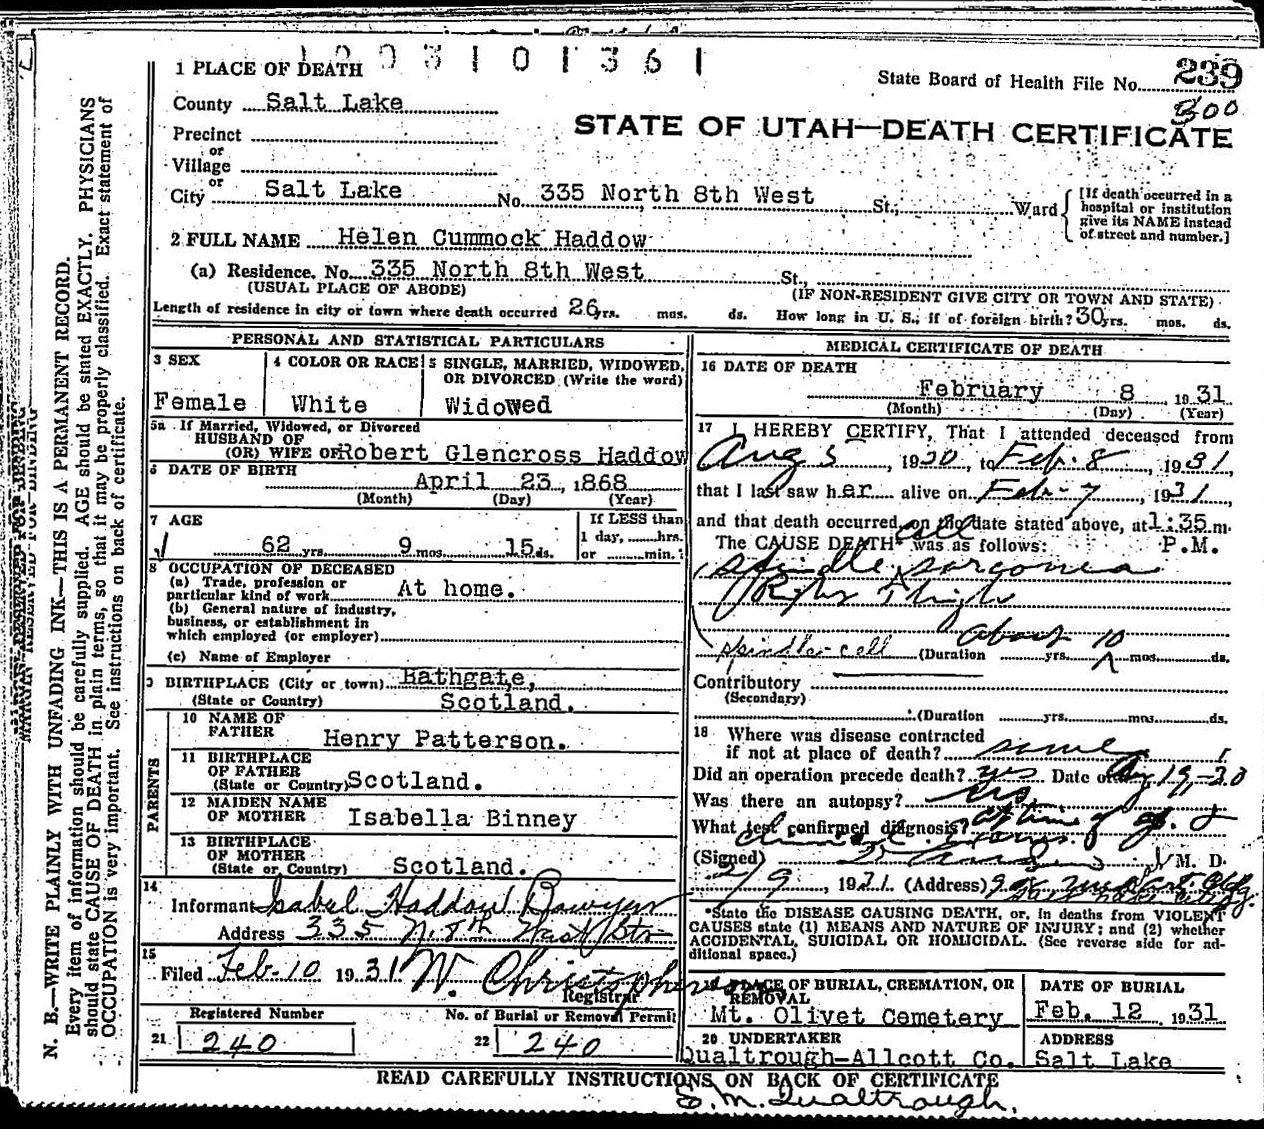 1 2 0 3 1 0 1 3 6 1
1 PLACE OF DEATH
State Board of Health File No. 239
300
County Salt Lake
STATE OF UTAH—DEATH CERTIFICATE
Precinct
or
Village
or
City Salt Lake No. 335 North 8th West St., Ward
[If death occurred in a hospital or institution give its NAME instead of street and number.]
2 FULL NAME Helen Cummock Haddow
(a) Residence. No. 335 North 8th West St.,
(USUAL PLACE OF ABODE) (IF NON-RESIDENT GIVE CITY OR TOWN AND STATE)
Length of residence in city or town where death occurred 26 yrs. mos. ds. How long in U. S., if of foreign birth? 30 yrs. mos. ds.
PERSONAL AND STATISTICAL PARTICULARS
3 SEX
Female
4 COLOR OR RACE
White
5 SINGLE, MARRIED, WIDOWED, OR DIVORCED (Write the word)
Widowed
5a If Married, Widowed, or Divorced
HUSBAND OF
(OR) WIFE OF Robert Glencross Haddow
6 DATE OF BIRTH
April 23, 1868
(Month) (Day) (Year)
7 AGE
62 yrs. 9 mos. 15 ds.
If LESS than
1 day, hrs.
or min.
8 OCCUPATION OF DECEASED
(a) Trade, profession or
particular kind of work At home.
(b) General nature of industry,
business, or establishment in
which employed (or employer)
(c) Name of Employer
9 BIRTHPLACE (City or town) Bathgate,
(State or Country) Scotland.
PARENTS
10 NAME OF
FATHER Henry Patterson.
11 BIRTHPLACE
OF FATHER
(State or Country) Scotland.
12 MAIDEN NAME
OF MOTHER Isabella Binney
13 BIRTHPLACE
OF MOTHER
(State or Country) Scotland.
14
Informant Isabel Haddow Bawyer
Address 335 N. 8th West Str
15
Filed Feb-10 1931 W. Christopherson
Registrar
Registered Number
21 240
No. of Burial or Removal Permit
22 240
MEDICAL CERTIFICATE OF DEATH
16 DATE OF DEATH
February 8, 1931
(Month) (Day) (Year)
17 I HEREBY CERTIFY, That I attended deceased from
Aug 5, 1930, to Feb. 8, 1931,
that I last saw her alive on Feb-7, 1931
and that death occurred, on the date stated above, at 1:35 m.
The CAUSE DEATH* was as follows: P.M.
cell
Spindle sarcoma
Right Thigh
about 10
spindle-cell (Duration yrs. mos. ds.
Contributory
(Secondary)
(Duration yrs. mos. ds.
18 Where was disease contracted
if not at place of death? same
Did an operation precede death? yes Date of Aug 19,-30
Was there an autopsy?
What test confirmed diagnosis?
(Signed) M. D.
2/9, 1931. (Address)
*State the DISEASE CAUSING DEATH, or, in deaths from VIOLENT
CAUSES state (1) MEANS AND NATURE OF INJURY; and (2) whether
ACCIDENTAL, SUICIDAL OR HOMICIDAL. (See reverse side for additional space.)
19 PLACE OF BURIAL, CREMATION, OR
REMOVAL
Mt. Olivet Cemetery
DATE OF BURIAL
Feb. 12, 1931
20 UNDERTAKER
Qualtrough-Allcott Co.
ADDRESS
Salt Lake
READ CAREFULLY INSTRUCTIONS ON BACK OF CERTIFICATE
S. M. Qualtrough.
MARGIN RESERVED FOR BINDING
N. B.—WRITE PLAINLY WITH UNFADING INK—THIS IS A PERMANENT RECORD.
Every item of information should be carefully supplied. AGE should be stated EXACTLY. PHYSICIANS
should state CAUSE OF DEATH in plain terms, so that it may be properly classified. Exact statement of
OCCUPATION is very important. See instructions on back of certificate.